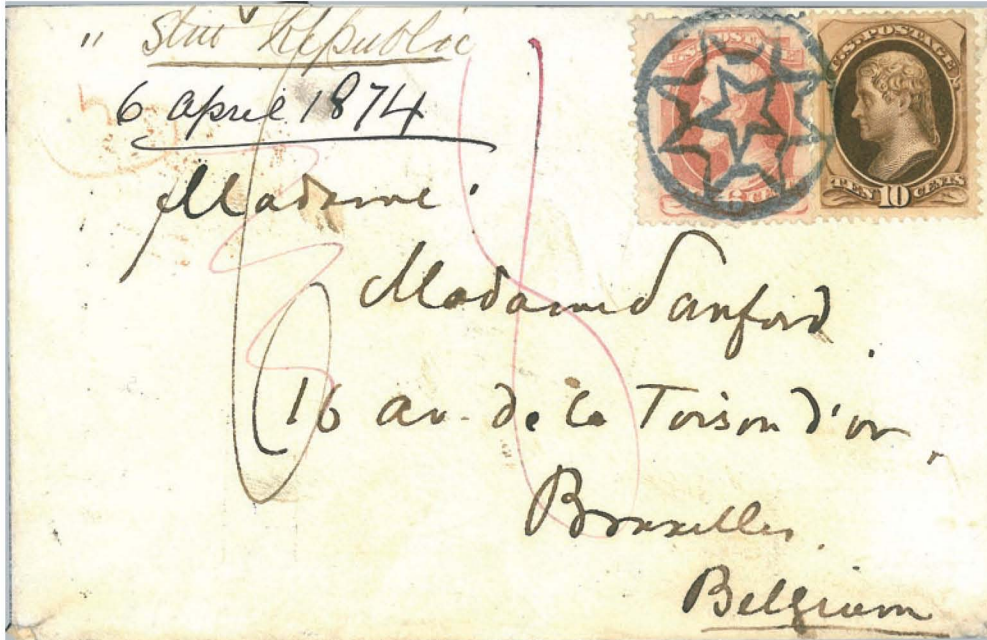 " Stmr Republic
6 april 1874
U.S. POSTAGE
6
U.S. POSTAGE
TEN 10 CENTS
Madame
Madame Sanford
16 av. de la Toison d'or,
Bruxelles.
Belgium